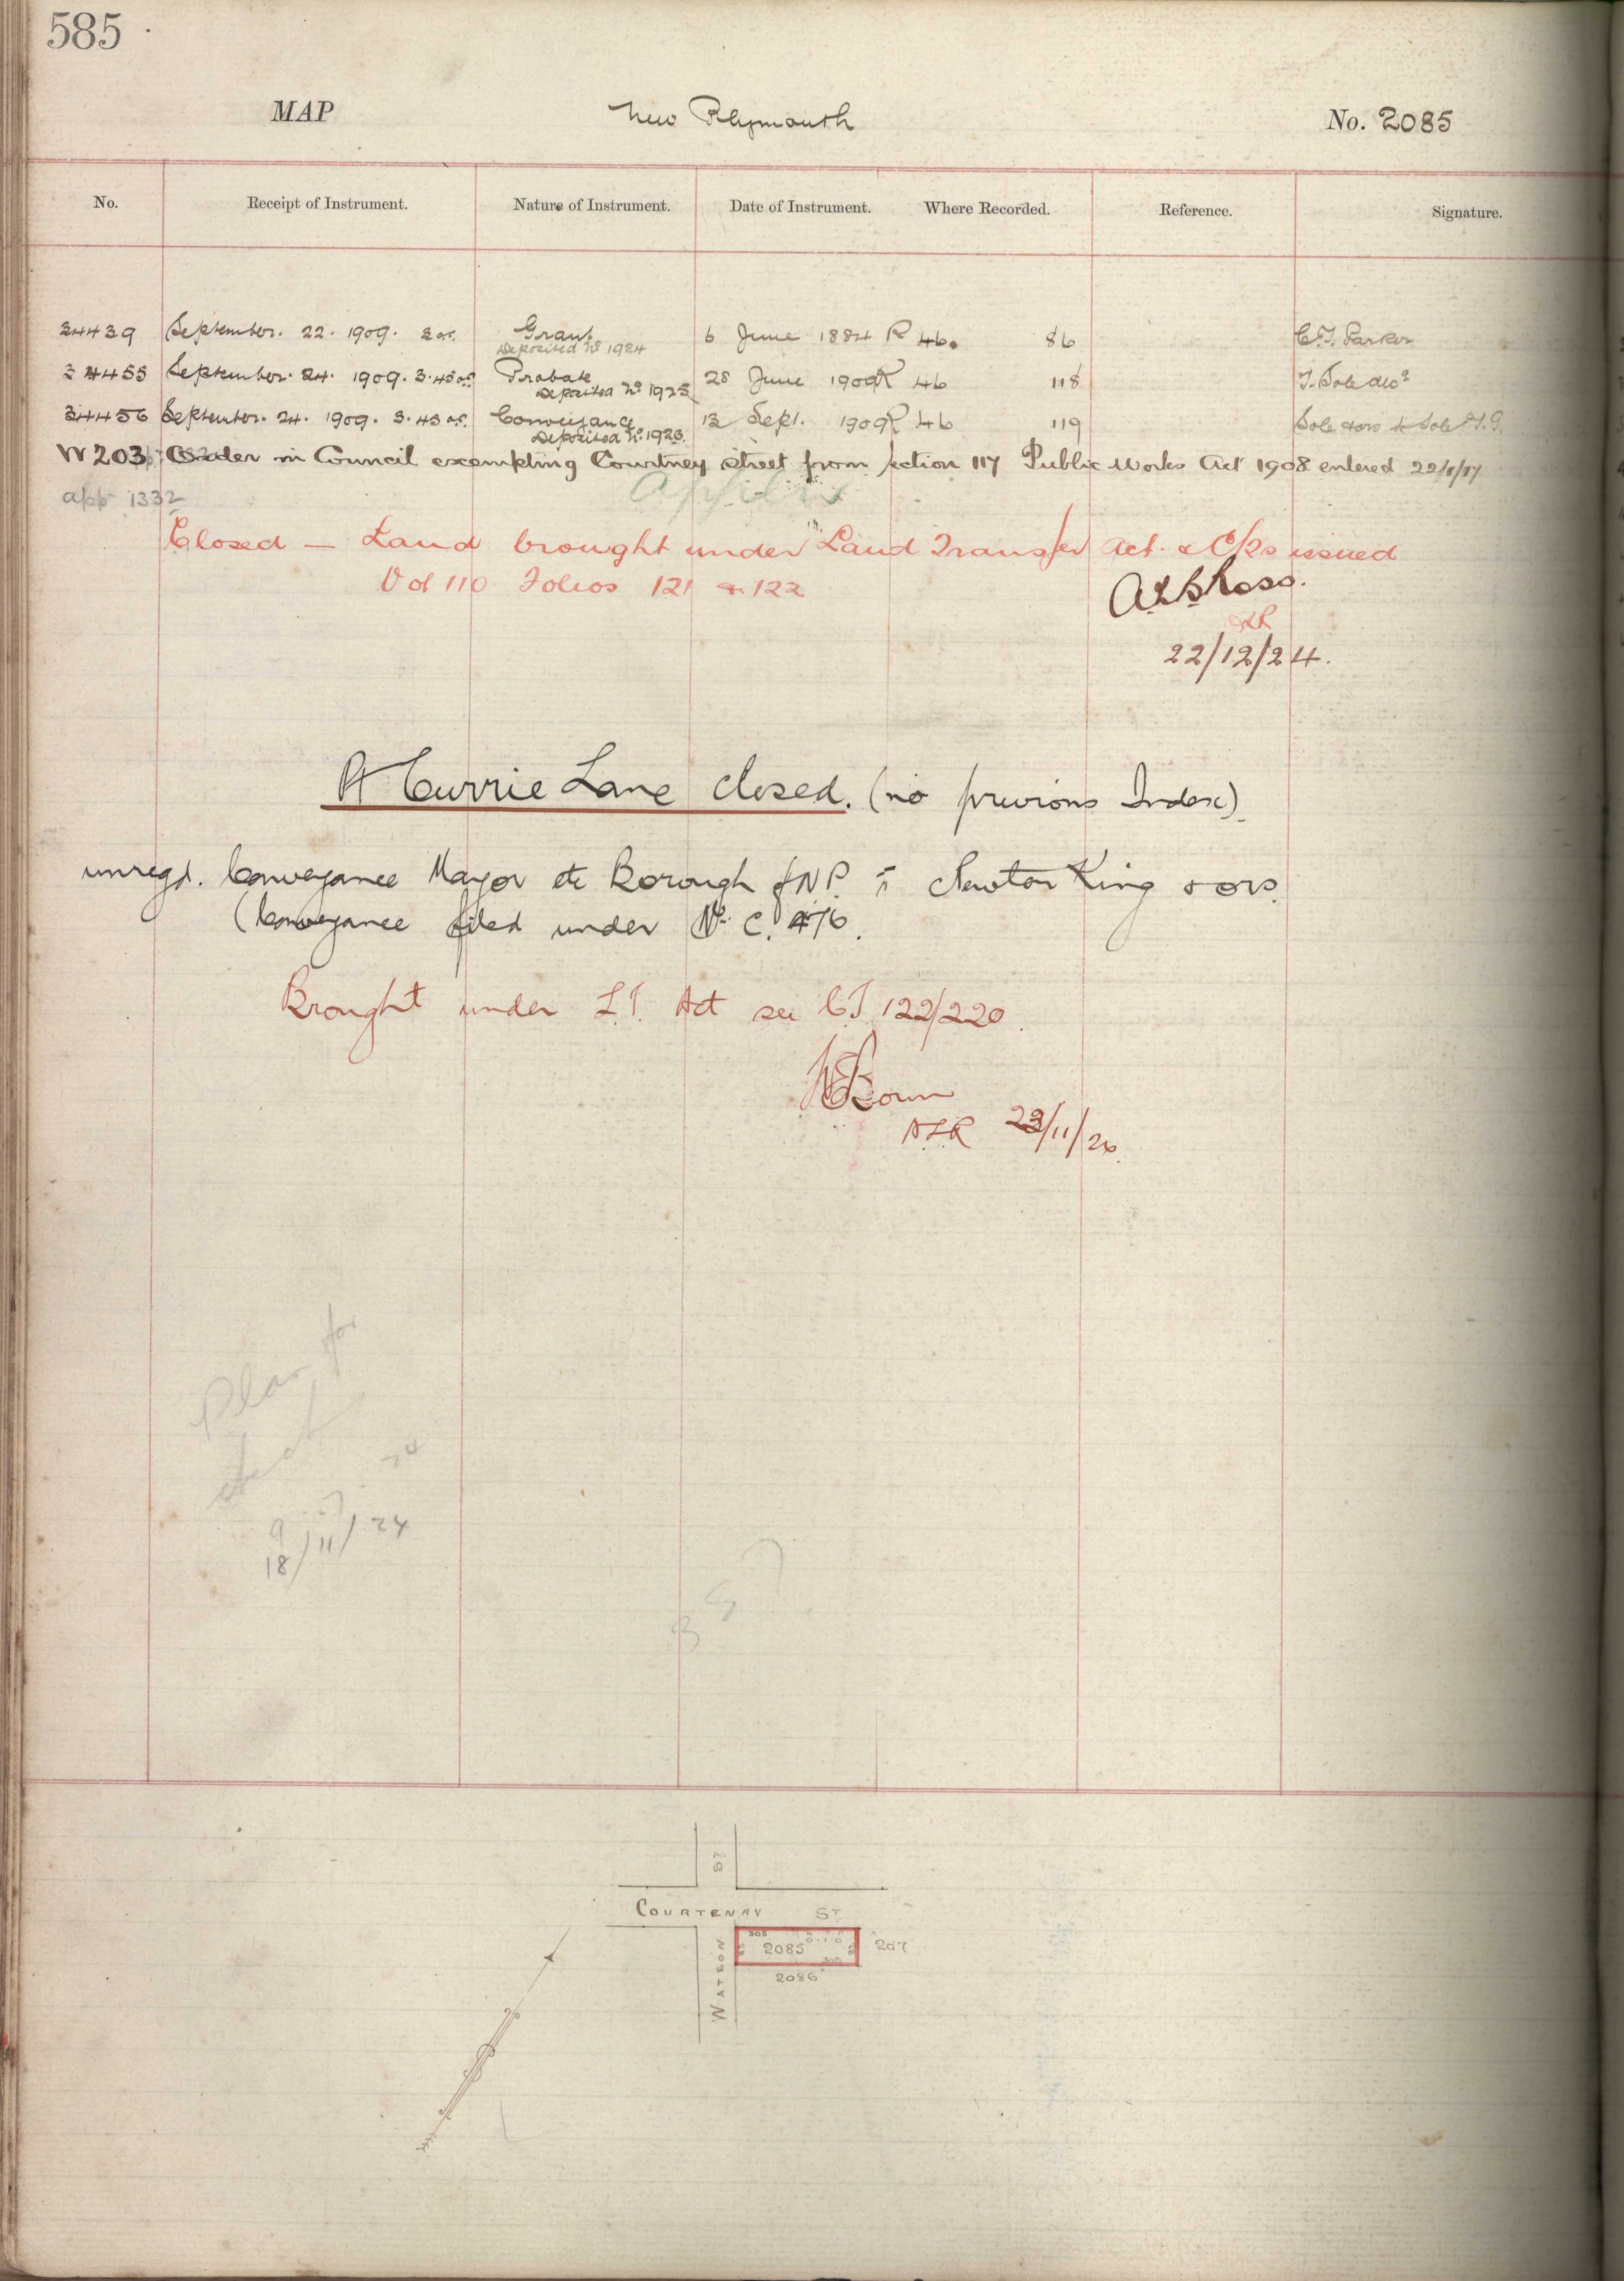 585
MAP New Plymouth No. 2085
No. Receipt of Instrument. Nature of Instrument. Date of Instrument. Where Recorded. Reference. Signature.
34439 September. 22. 1909. Grant 6 June 1884 R 46. 86 C. T. Parker
Deposited No 1924
34455 September. 24. 1909. 3.45 Probate 28 June 1909 R 46 118 T. Sole decd
Deposited No 1925
34456 September. 24. 1909. 3.45 Conveyance 13 Sept. 1909 R 46 119 Sole & ors to Sole
Deposited No 1926.
W 203 Order in Council exempting Courtney Street from section 117 Public Works Act 1908 entered 22/1/17
app 1332
Closed — Land brought under Land Transfer Act. & C/ts issued
Vol 110 Folios 121 & 122
22/12/24.
Pt Currie Lane closed. (no previous Index)
unregd. Conveyance Mayor etc Borough of N.P. to Newton King & ors.
(Conveyance filed under No. C. 476.
Brought under L.T. Act see C.T. 122/220.
ALR 23/11/26
Plan for
18/11/24
ST
COURTENAY ST.
2085
207
2086
WATSON